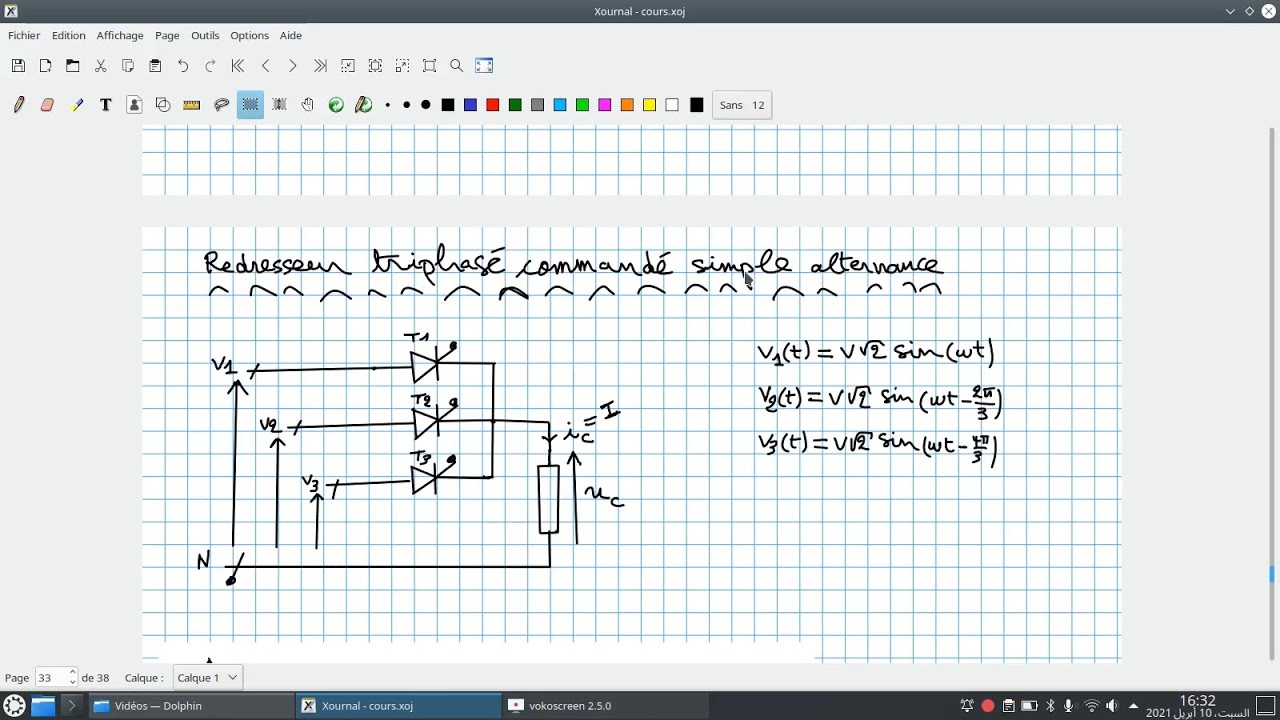 Xournal - cours.xoj
Fichier Edition Affichage Page Outils Options Aide
T
Sans 12
Redresseur triphasé commandé simple alternance
T1
V1
T2
V2
T3
V3
ic = I
uc
N
V1(t) = V√2 sin(ωt)
V2(t) = V√2 sin(ωt - 2π/3)
V3(t) = V√2 sin(ωt - 4π/3)
Page 33 de 38 Calque : Calque 1
Vidéos — Dolphin
Xournal - cours.xoj
vokoscreen 2.5.0
16:32
السبت، 10 أبريل 2021